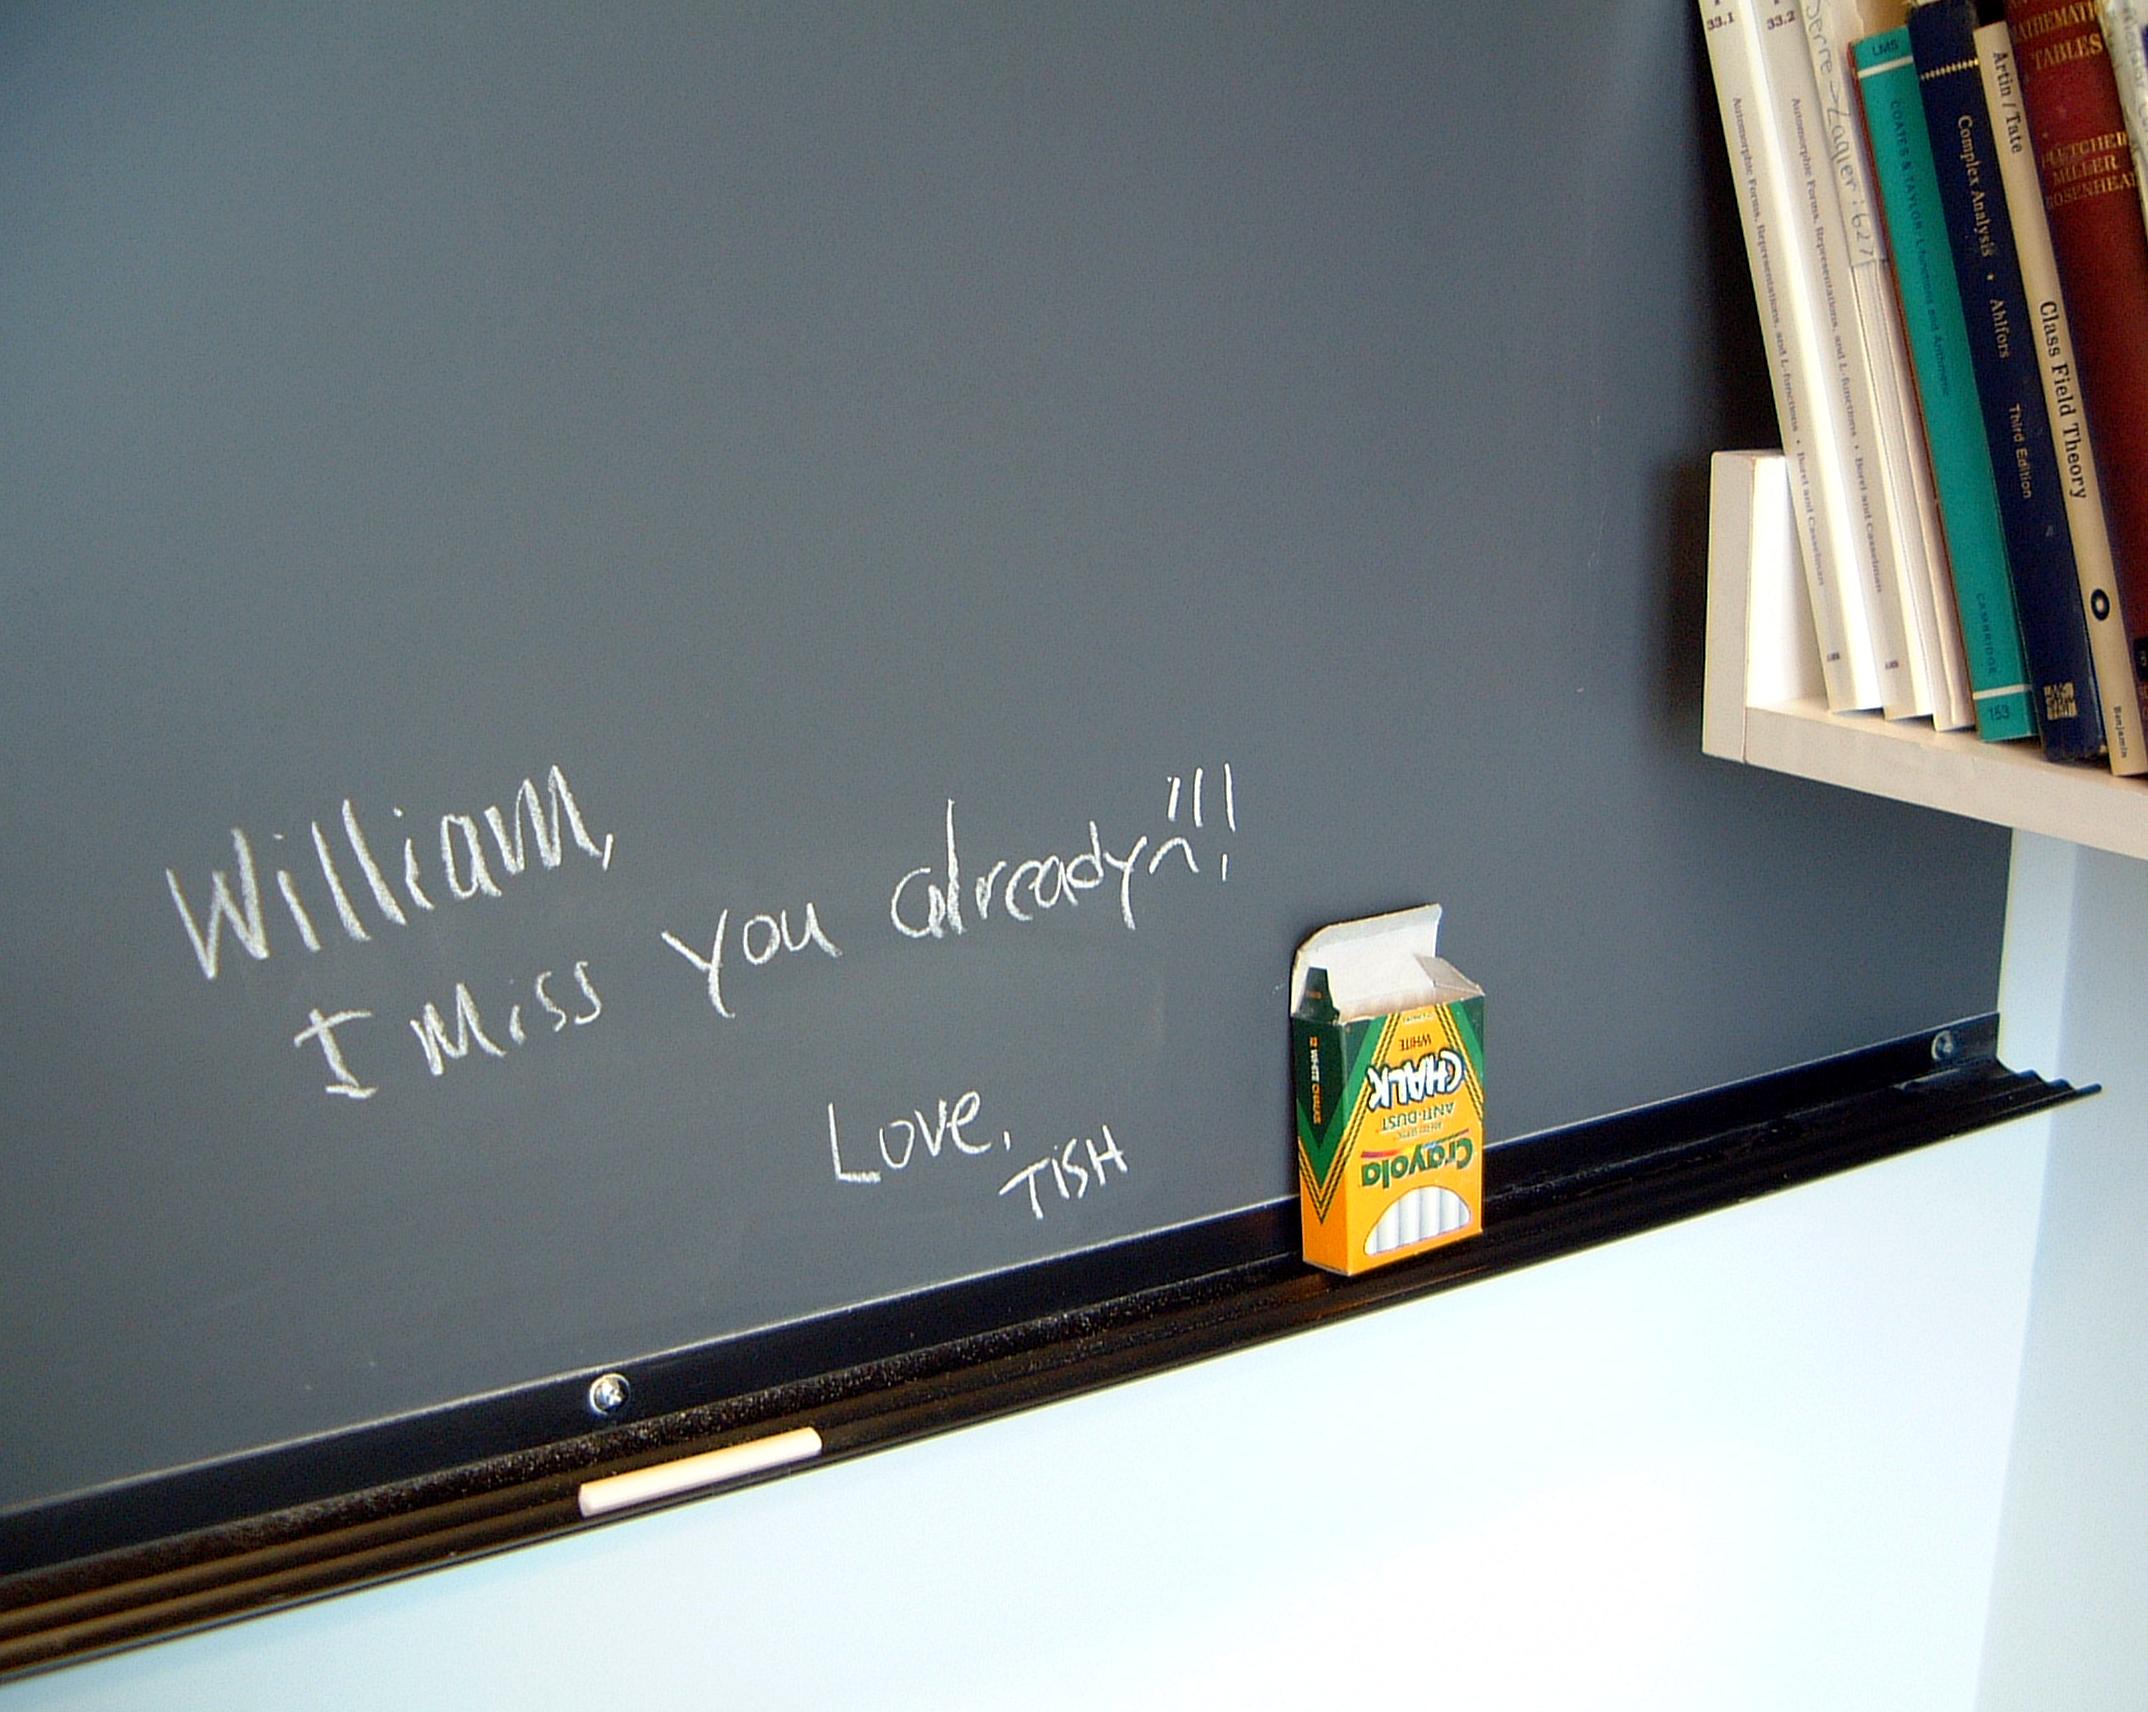 William,
I Miss you already!!!
Love,
TISH
12 WHITE CHALKS
Crayola
ANTI-DUST
CHALK
WHITE
33.1
Automorphic Forms, Representations, and L-functions • Borel and Casselman
33.2
Automorphic Forms, Representations, and L-functions • Borel and Casselman
Serre → Zagier: 627
LMS
COATES & TAYLOR: L-functions and Arithmetic
CAMBRIDGE
153
Complex Analysis • Ahlfors
Third Edition
Artin / Tate
Class Field Theory
Benjamin
MATHEMATI
TABLES
FLETCHER
MILLER
ROSENHEA